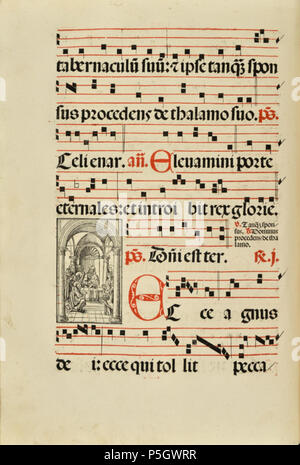 tabernaculū suū: ⁊ ipse tanq̄ʒ spon
sus procedens de thalamo suo. ps.
Celi enar. añ. Eleuamini porte
eternales: et introi bit rex glorie.
℣. Tanq̄ʒ spon
sus. ℟. Dominus
procedens de tha
lamo.
ps. Dñi est ter. ℟. j.
Ec ce a gnus
de i: ecce qui tol lit pecca
alamy
Image ID: P5GWRR
www.alamy.com